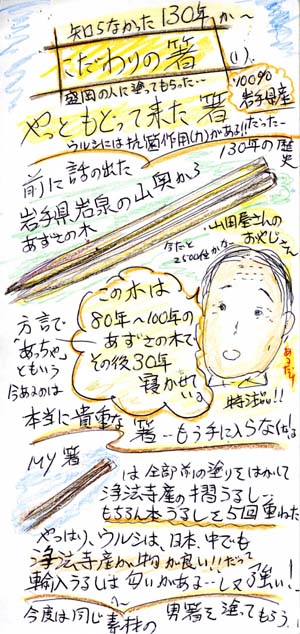 知らなかった130年か〜
こだわりの箸(1).
盛岡の人に塗ってもらった‥
100%
岩手県産
やっともどって来た箸
ウルシには抗菌作用(力)がある!!だった‥
130年の歴史
前に話の出た
岩手県岩泉の山奥から
あずさの木
山田屋さんの
おやじさん
今だと
2500位かな‥
この木は
80年〜100年の
あずさの木で
その後30年
寝かせている。
方言で
「あっちゃ」
ともいう
今あるのは
特注品!!
本当に貴重な箸‥もう手に入らな
MY箸
は全部前の塗りをはがして
浄法寺産の本習うるし‥
もちろん本うるしを5回重ねた
やっぱり、ウルシは、日本、中でも
浄法寺産が、物が良い!!だって
輸入うるしは匂いがある‥しかも強い!
今度は同じ素材の男箸を塗ってもらう